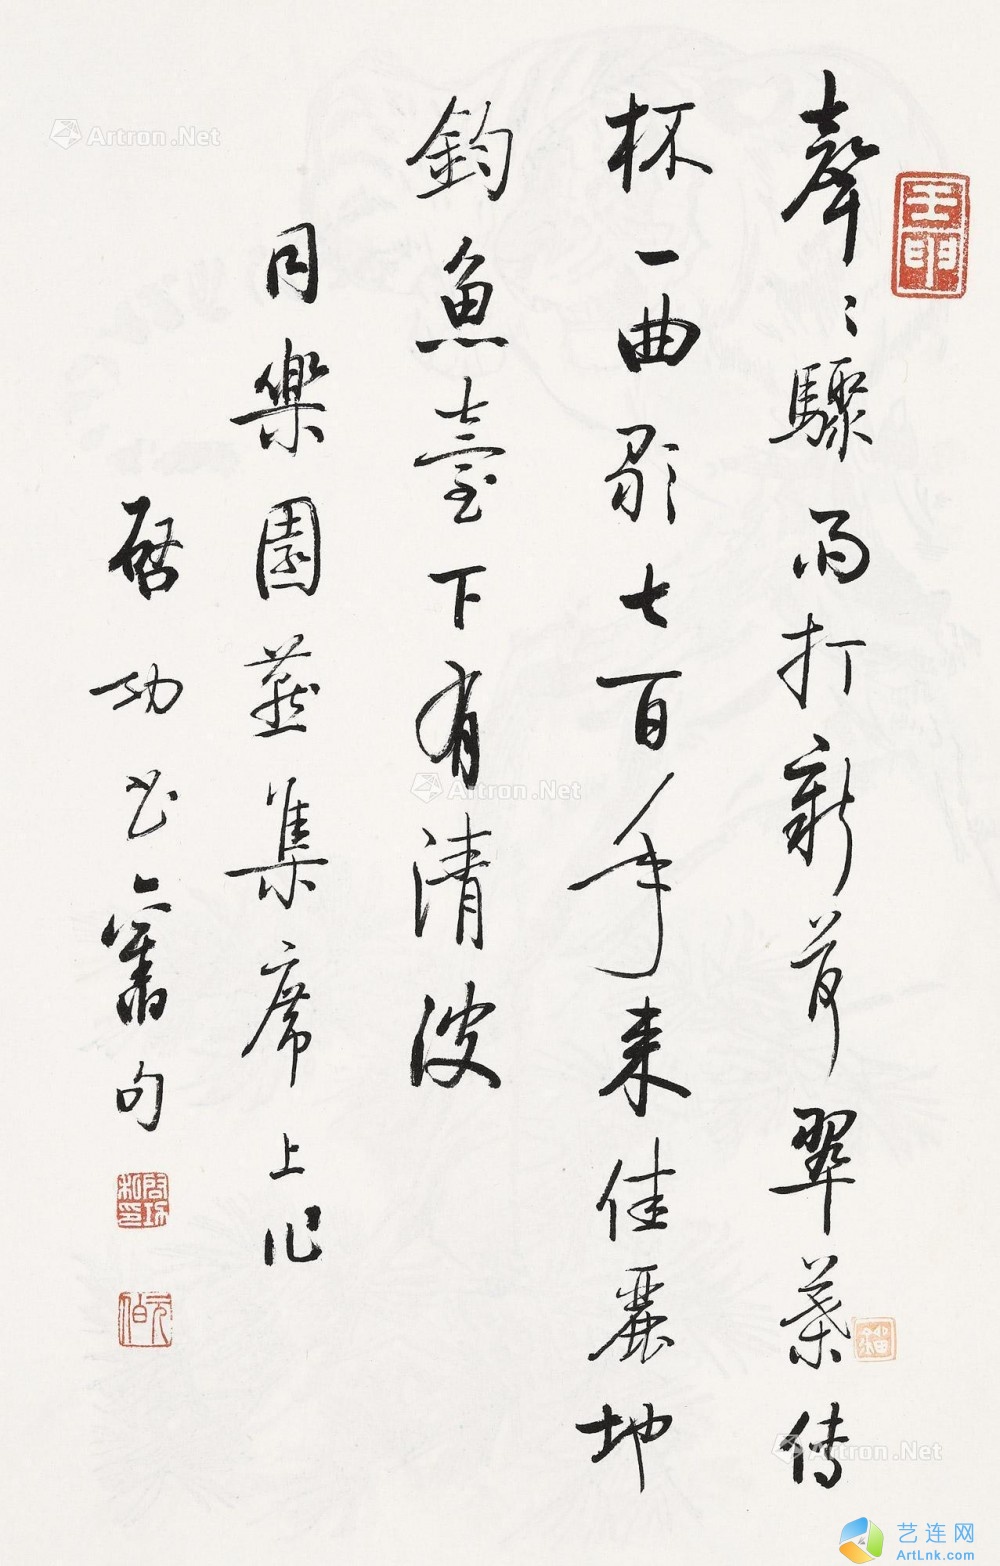 聲〻驟雨打新荷翠葉傳
杯一曲歌七百年来佳麗地
釣魚臺下有清波
同樂園䜩集席上作
啓功書舊句
啓功私印
元伯
Artron.Net
Artron.Net
Artron.Net
艺连网
ArtLnk.com